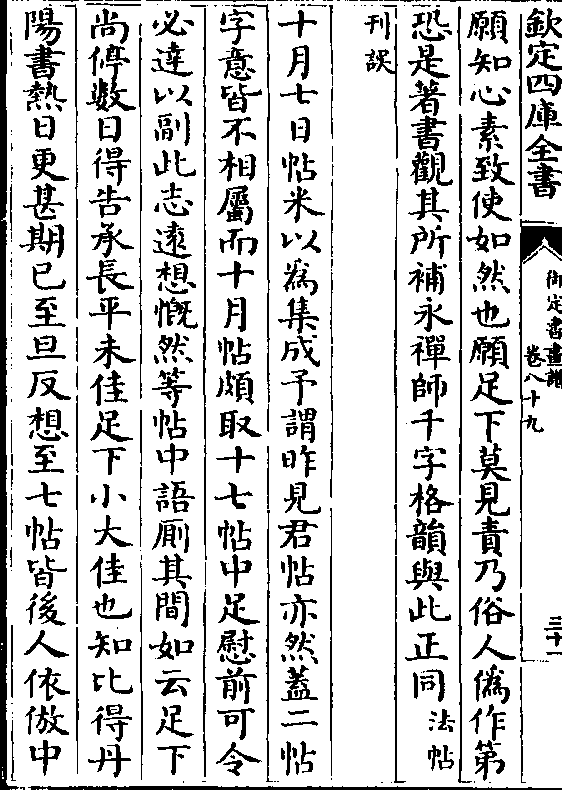 欽定四庫全書
御定書畫譜
卷八十九
三十一
願知心素致使如然也願足下莫見責乃俗人僞作第
恐是著書觀其所補永禪師千字格韻與此正同法帖
刊誤
十月七日帖米以爲集成予謂昨見君帖亦然蓋二帖
字意皆不相屬而十月帖頗取十七帖中足慰前可令
必達以副此志遠想慨然等帖中語厠其間如云足下
尚停數日得告承長平未佳足下小大佳也知比得丹
陽書熱日更甚期已至旦反想至七帖皆後人依倣中